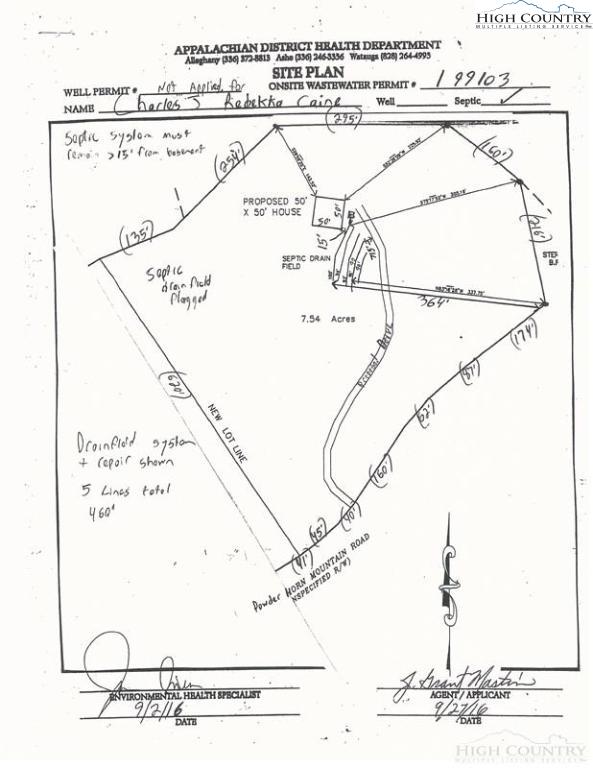 HIGH COUNTRY
MULTIPLE LISTING SERVICE
APPALACHIAN DISTRICT HEALTH DEPARTMENT
Alleghany (336) 372-8813 Ashe (336) 246-3356 Watauga (828) 264-4995
SITE PLAN
WELL PERMIT # Not Applied for ONSITE WASTEWATER PERMIT # 199103
NAME Charles J Rebekka Caine Well Septic ✓
(295')
Septic system must
remain >15' from basement
(254')
(150')
PROPOSED 50'
X 50' HOUSE
50'
50'
(135')
15'
(216')
SEPTIC DRAIN
FIELD
75'
Septic
drain field
flagged
364'
7.54 Acres
(174')
(87')
(609')
NEW LOT LINE
(62')
Drainfield system
+ repair shown
5 Lines total
460'
(160')
(40')
(45')
(41')
Powder HORN MOUNTAIN ROAD
NSPECIFIED R/W)
J. Grant Mastin
ENVIRONMENTAL HEALTH SPECIALIST
AGENT / APPLICANT
9/2/16
9/27/16
DATE
DATE
HIGH COUNTRY
MULTIPLE LISTING SERVICE